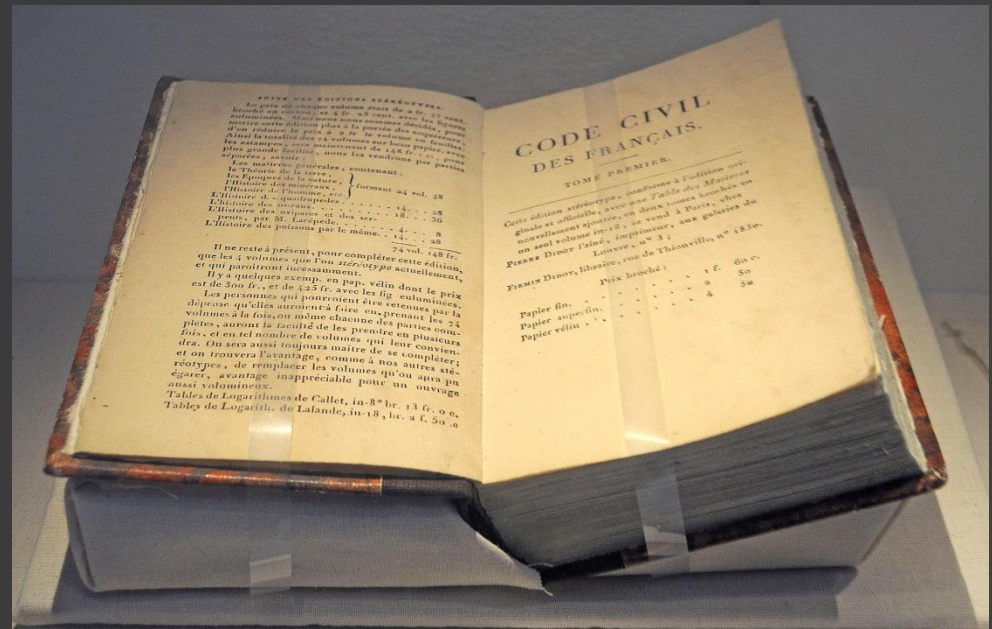 SUITE DES ÉDITIONS STÉRÉOTYPES.
Le prix de chaque volume étoit de 2 fr. 75 cent.
broché en carton, et 4 fr. 25 cent. avec les figures
enluminées. Mais nous nous sommes décidés, pour
mettre cette édition plus à la portée des acquéreurs,
d'en réduire le prix à 2 fr le volume en feuilles.
Ainsi la totalité des 74 volumes sur beau papier, avec
les estampes, sera maintenant de 148 fr.; et, pour
plus grande facilité, nous les vendrons par parties
séparées, savoir:
Les matieres générales, contenant:
la Théorie de la terre,
les Époques de la nature,
l'Histoire des minéraux,
l'Histoire de l'homme, etc. } formant 24 vol. 48
L'Histoire des quadrupedes. . . . . . . 14. . . 28
L'Histoire des oiseaux. . . . . . . . 18. . . 36
L'Histoire des ovipares et des ser-
pents, par M. Lacépede. . . . . . 4. . . 8
L'Histoire des poissons par le même. . 14. . . 28
74 vol. 148 fr.
Il ne reste à présent, pour compléter cette édition,
que les 4 volumes que l'on stéréotype actuellement,
et qui paroîtront incessamment.
Il y a quelques exemp. en pap. vélin dont le prix
est de 300 fr., et de 425 fr. avec les fig enluminées.
Les personnes qui pourroient être retenues par la
dépense qu'elles auroient à faire en prenant les 74
volumes à la fois, ou même chacune des parties com-
pletes, auront la faculté de les prendre en plusieurs
fois, et en tel nombre de volumes qui leur convien-
dra. On sera aussi toujours maître de se compléter;
et on trouvera l'avantage, comme à nos autres sté-
réotypes, de remplacer les volumes qu'on aura pu
égarer, avantage inappréciable pour un ouvrage
aussi volumineux.
Tables de Logarithmes de Callet, in-8° br. 13 fr. 0 c.
Tables de Logarith. de Lalande, in-18, br. 2 f. 50 c.
CODE CIVIL
DES FRANÇAIS.
TOME PREMIER.
Cette édition stéréotype, conforme à l'édition ori-
ginale et officielle, avec une Table des Matieres
nouvellement ajoutée, en deux tomes brochés en
un seul volume in-18, se vend à Paris, chez
PIERRE DIDOT l'aîné, imprimeur, aux galeries du
Louvre, n° 3;
FIRMIN DIDOT, libraire, rue de Thionville, n° 1850.
Prix broché:
Papier fin. . . . . . . 1 f. 60 c.
Papier superfin. . . . . 2 50
Papier vélin . . . . . . 4 50